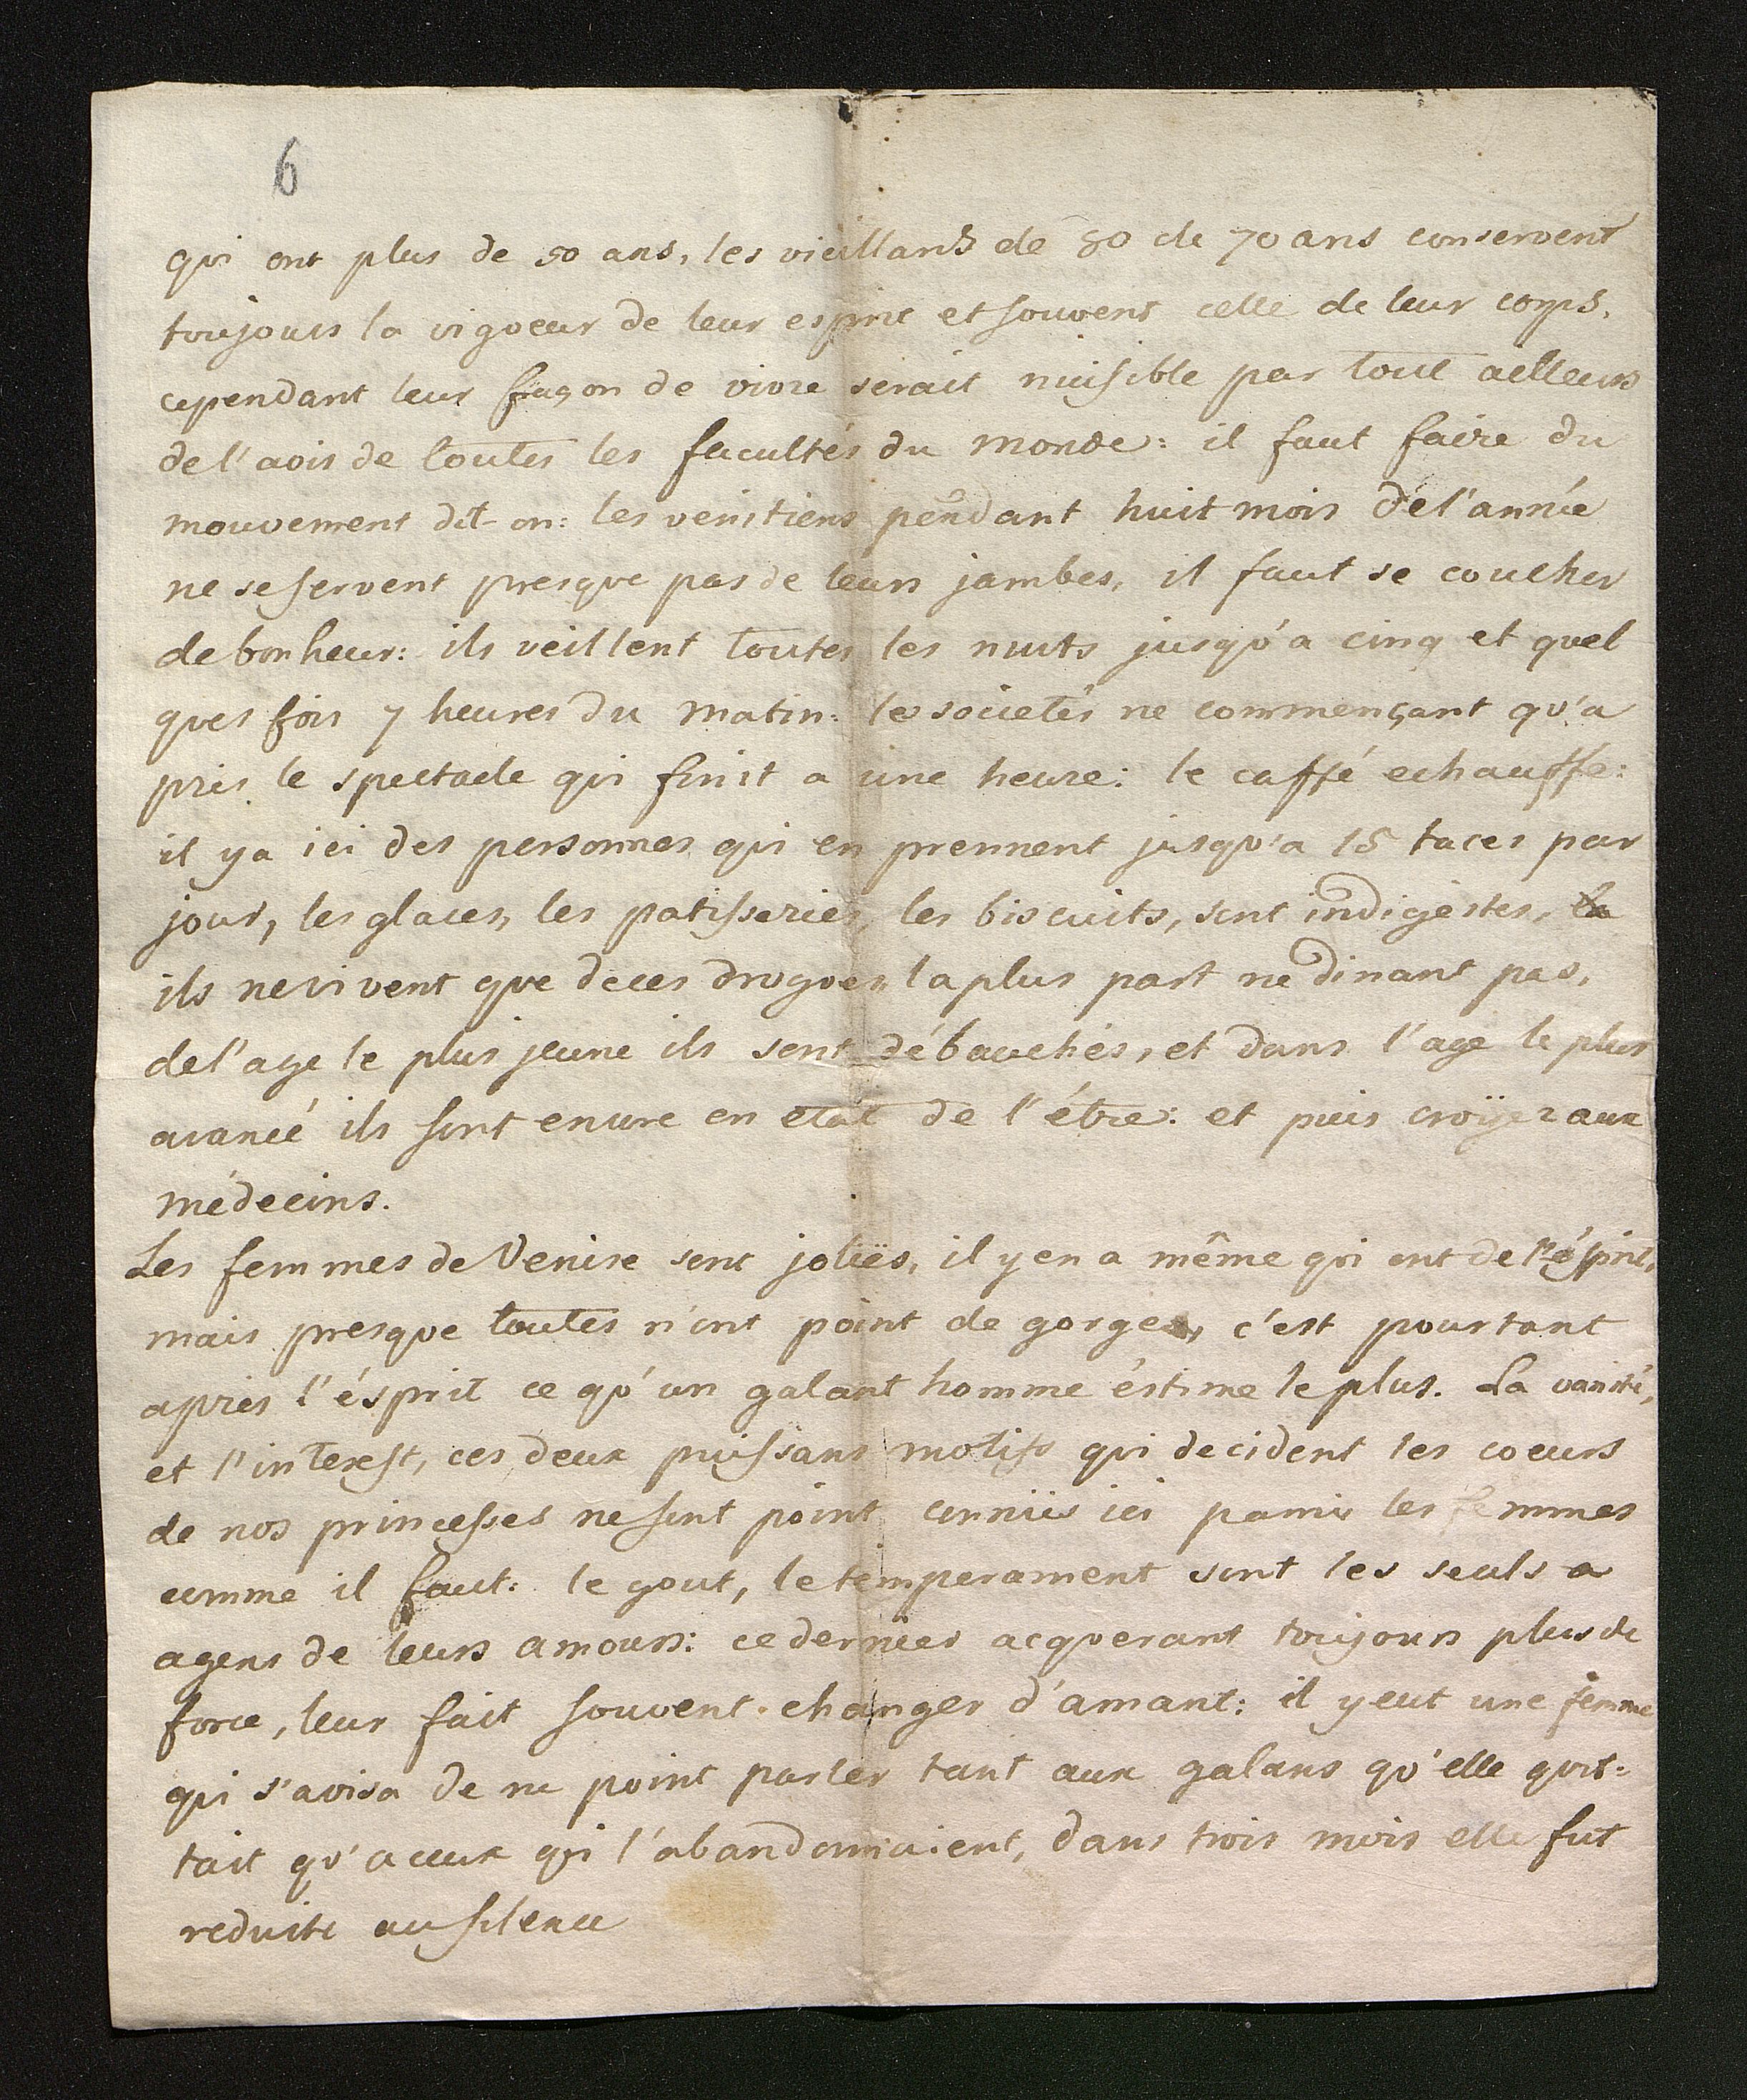 6
qui ont plus de 50 ans, les vieillards de 80 de 70 ans conservent
toujours la vigoeur de leur esprit et souvent celle de leur corps.
cependant leur façon de vivre serait nuisible par tout ailleurs
de l'avis de toutes les facultés du monde: il faut faire du
mouvement dit-on: les venitiens pendant huit mois de l'année
ne se servent presque pas de leurs jambes, il faut se coucher
de bonheur: ils veillent toutes les nuits jusqu'a cinq et quel
ques fois 7 heures du matin: les societés ne commençant qu'a
près le spectacle qui finit a une heure: le caffé echauffe:
il y a ici des personnes qui en prennent jusqu'a 15 taces par
jour, les glaces, les patisseries, les biscuits, sont indigestes, la
ils ne vivent que de ces drogues, la plus part ne dinant pas,
de l'age le plus jeune ils sont débauchés, et dans l'age le plus
avancé ils sont encore en etat de l'étre: et puis croÿez aux
médecins.
Les femmes de Venise sont joliës, il y en a même qui ont de l'ésprit,
mais presque toutes n'ont point de gorges, c'est pourtant
après l'ésprit ce qu'un galant homme éstime le plus. La vanité,
et l'interest, ces deux puissans motifs qui decident les coeurs
de nos princesses ne sont point connüs ici parmi les femmes
comme il faut: le gout, le temperament sont les seuls a
agens de leurs amours: ce dernier acquerant toujours plus de
force, leur fait souvent changer d'amant: il y eut une femme
qui s'avisa de ne point parler tant aux galans qu'elle quit-
tait qu'a ceux qui l'abandonnaient, dans trois mois elle fut
reduite au silence